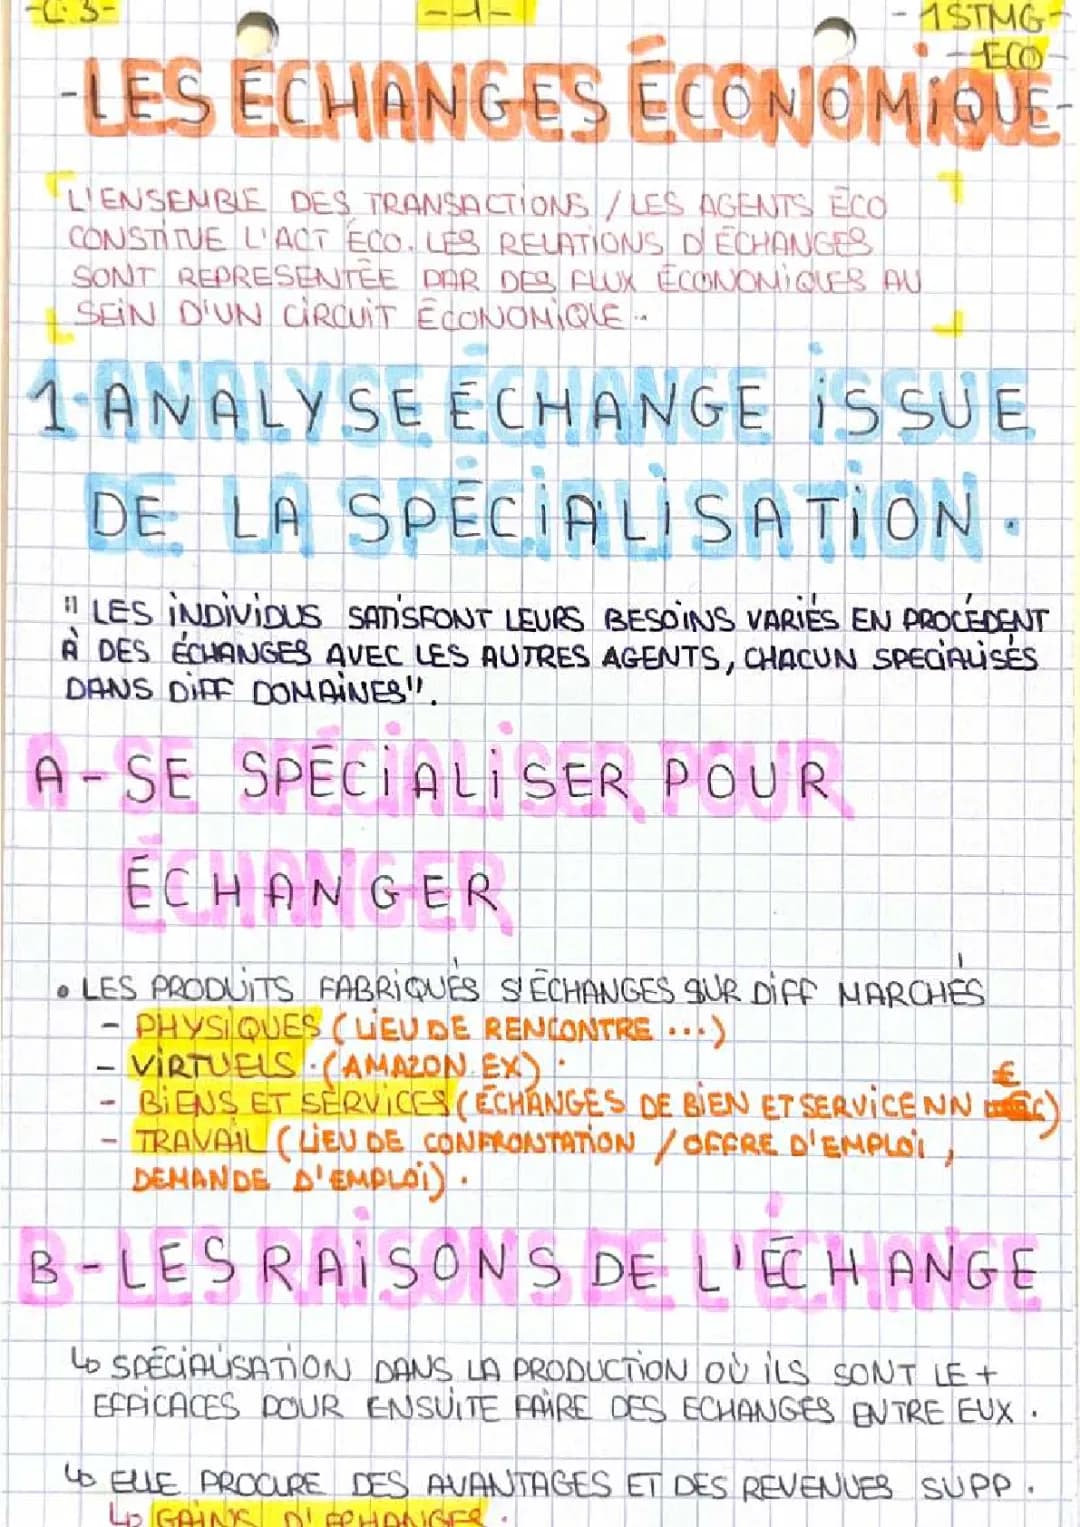 -C.3-
-1-
- 1STMG -
- ECO -
-LES ÉCHANGES ÉCONOMIQUE-
L'ENSEMBLE DES TRANSACTIONS / LES AGENTS ÉCO
CONSTITUE L'ACT ÉCO. LES RELATIONS D'ÉCHANGES
SONT REPRESENTÉE PAR DES FLUX ÉCONOMIQUES AU
SEIN D'UN CIRCUIT ÉCONOMIQUE..
1-ANALYSE ÉCHANGE ISSUE
DE LA SPÉCIALISATION.
"LES INDIVIDUS SATISFONT LEURS BESOINS VARIÉS EN PROCÉDENT
À DES ÉCHANGES AVEC LES AUTRES AGENTS, CHACUN SPECIALISÉS
DANS DIFF DOMAINES".
A - SE SPÉCIALISER POUR
ÉCHANGER
• LES PRODUITS FABRIQUÉS S'ÉCHANGES SUR DIFF MARCHÉS
- PHYSIQUES (LIEU DE RENCONTRE ...)
- VIRTUELS. (AMAZON EX).
- BIENS ET SERVICES (ÉCHANGES DE BIEN ET SERVICE NN €)
- TRAVAIL (LIEU DE CONFRONTATION / OFFRE D'EMPLOI,
DEMANDE D'EMPLOI).
B - LES RAISONS DE L'ÉCHANGE
↳ SPÉCIALISATION DANS LA PRODUCTION OÙ ILS SONT LE +
EFFICACES POUR ENSUITE FAIRE DES ECHANGES ENTRE EUX.
↳ ELLE PROCURE DES AVANTAGES ET DES REVENUES SUPP.
↳ GAINS D'ECHANGER.